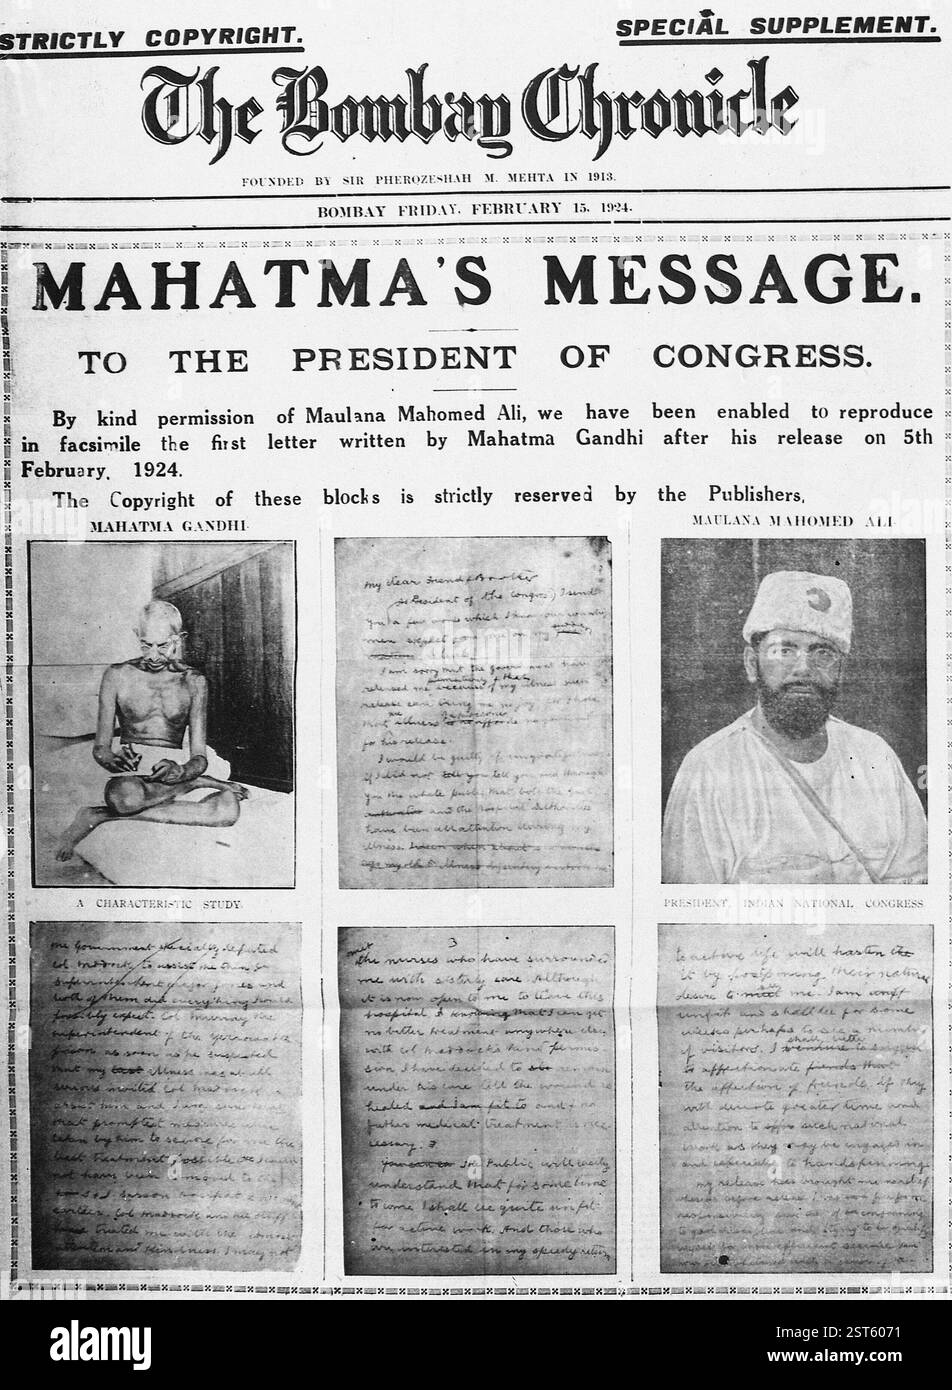 STRICTLY COPYRIGHT.
SPECIAL SUPPLEMENT.
The Bombay Chronicle
FOUNDED BY SIR PHEROZESHAH M. MEHTA IN 1913.
BOMBAY FRIDAY, FEBRUARY 15, 1924.
MAHATMA'S MESSAGE.
TO THE PRESIDENT OF CONGRESS.
By kind permission of Maulana Mahomed Ali, we have been enabled to reproduce
in facsimile the first letter written by Mahatma Gandhi after his release on 5th
February, 1924.
The Copyright of these blocks is strictly reserved by the Publishers.
MAHATMA GANDHI
MAULANA MAHOMED ALI
My dear Friend & Brother
President of the Congress) I send
you a few words which I know our country
men expect
I am sorry that the government have
released me of my illness
release can bring me no joy for
that illness affords no
for his release.
I would be guilty of ingratitude
if I did not tell you and through
you the whole public that both the
and the hospital authorities
have been all attention during my
illness.
A CHARACTERISTIC STUDY
PRESIDENT, INDIAN NATIONAL CONGRESS
the Government specially deputed
Col. Maddock to assist
both of them did everything
possibly expect. Col. Murray the
superintendent of the Yerrowada
prison as soon as he suspected
that my illness was at all
serious invited Col. Maddock
and I am sure
that promptest measures
taken by him to secure for me the
best treatment possible
not have been moved to the
earlier. Col. Maddock and his staff
have treated me with the
attention and kindness. I may not
3
the nurses who have surrounded
me with sisterly care. Although
it is now open to me to leave this
hospital I knowing that I can get
no better treatment anywhere else,
with Col. Maddock's kind permis-
sion I have decided to remain
under his care till the wound is
healed and no
further medical treatment is nec-
essary.
The Public will easily
understand that for some time
to come I shall be quite unfit
for active work. And those who
are interested in my speedy return
to active life will hasten
it by postponing their natural
desire to see me. I am unfit
and shall be for some
weeks perhaps to see a number
of visitors. I shall better
appreciate
the affection of friends if they
will devote greater time and
attention to such national
work as they may be engaged in
and especially to handspinning.
My release has brought me
alamy
alamy
Image ID: 2ST6071
www.alamy.com